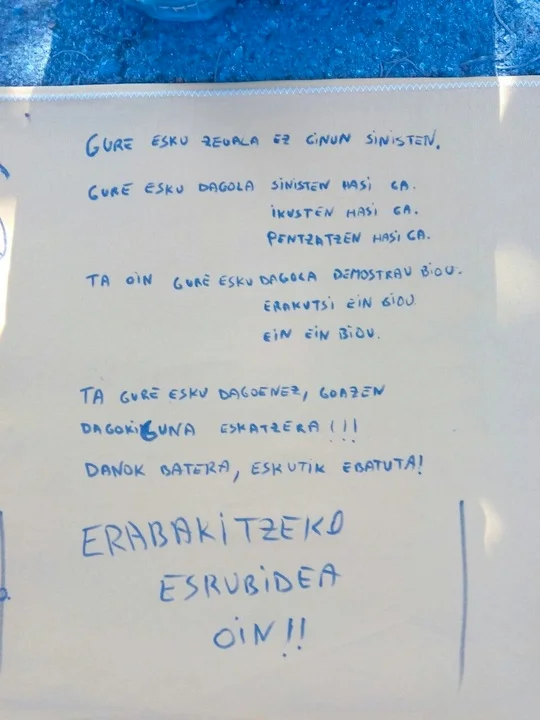 GURE ESKU ZEUALA EZ GINUN SINISTEN.
GURE ESKU DAGOLA SINISTEN HASI GA.
IKUSTEN HASI GA.
PENTZATZEN HASI GA.
TA OIN GURE ESKU DAGOLA DEMOSTRAU BIOU.
ERAKUTSI EIN BIOU
EIN EIN BIOU.
TA GURE ESKU DAGOENEZ, GOAZEN
DAGOKIGUNA ESKATZERA!!!
DANOK BATERA, ESKUTIK EBATUTA!
ERABAKITZEKO
ESKUBIDEA
OIN!!